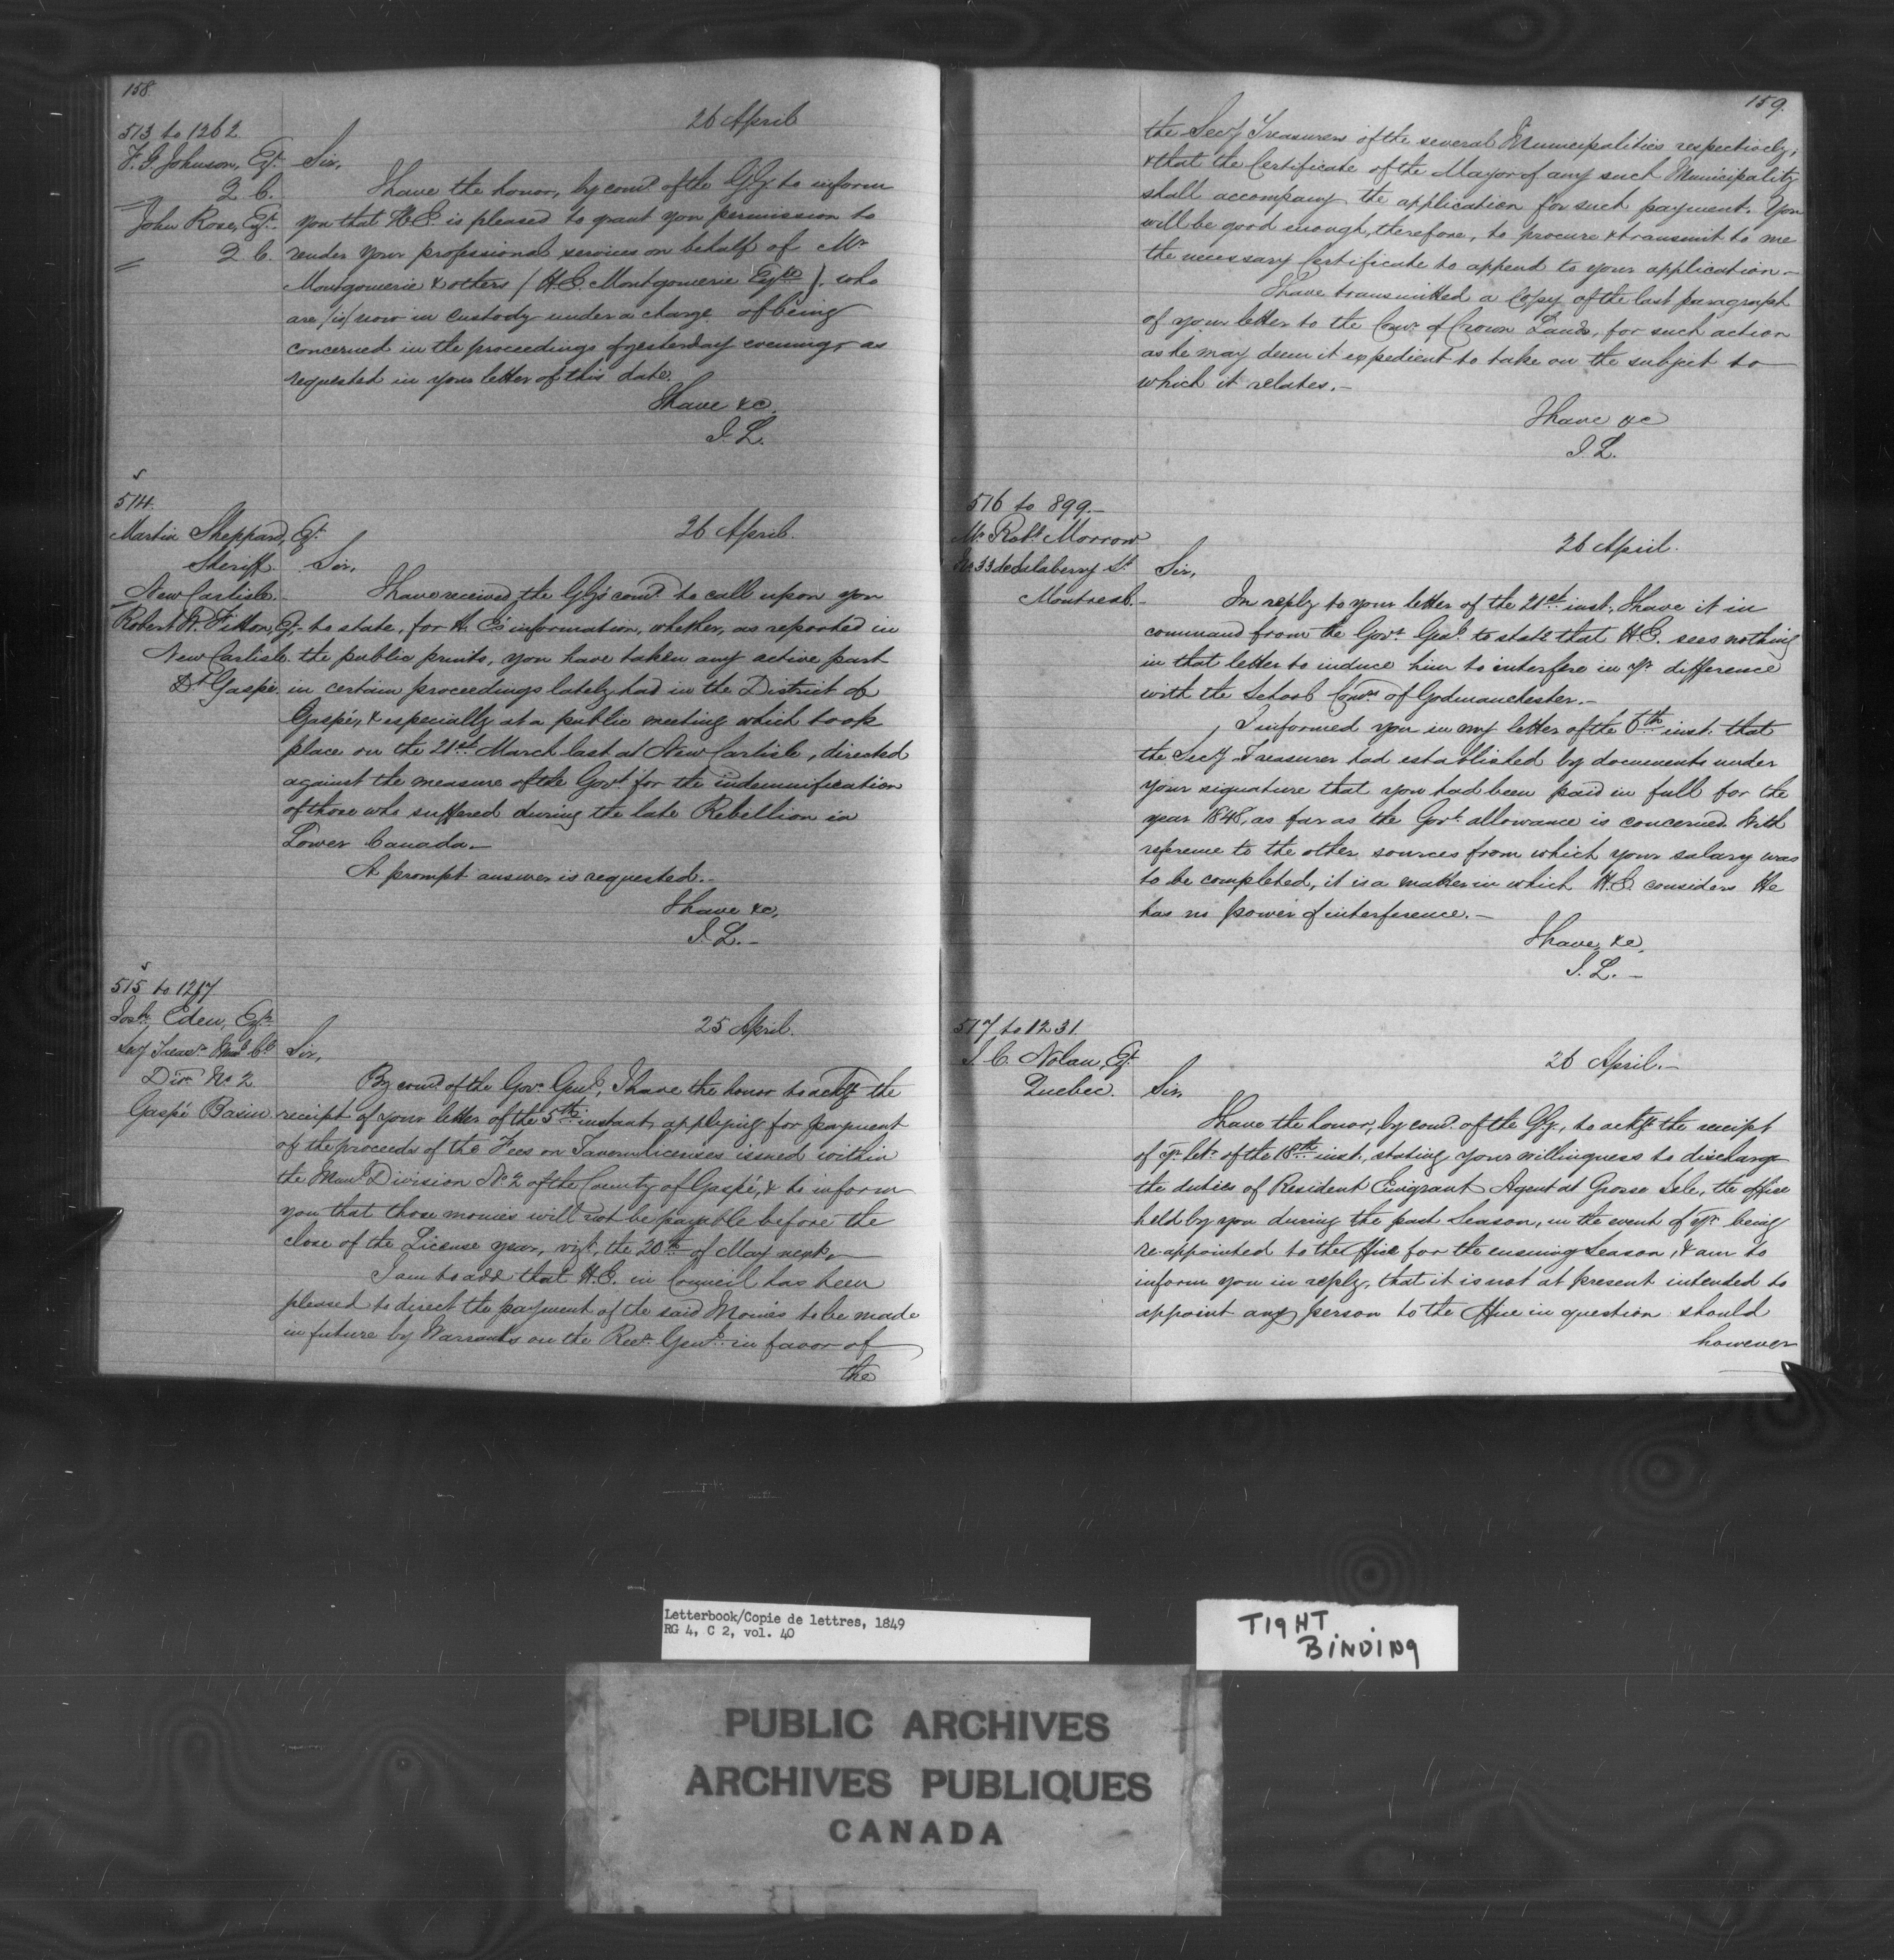 158.
513 to 1262.
F. G. Johnson, Esqr.
Q. C.
John Rose, Esqr.
Q. C.
26 April
Sir,
I have the honor, by comd. of the G.G. to inform
you that H.E. is pleased to grant you permission to
render your professional services on behalf of Mr
Montgomerie & others (H.E. Montgomerie Esqre), who
are (is) now in custody under a charge of being
concerned in the proceedings of yesterday evening, as
requested in your letter of this date.
I have &c.
J. L.
514.
Martin Sheppard, Esqr.
Sheriff.
New Carlisle.
Robert W. Fitton, Esqr.
New Carlisle.
Dt. Gaspé
26 April.
Sir,
I have received the G.G's comd. to call upon you
to state, for H. E's information, whether, as reported in
the public prints, you have taken any active part
in certain proceedings lately had in the District of
Gaspé, & especially at a public meeting which took
place on the 21st March last at New Carlisle, directed
against the measure of the Govt. for the indemnification
of those who suffered during the late Rebellion in
Lower Canada.—
A prompt answer is requested.—
I have &c,
J. L.—
515 to 1217
Josh. Eden, Esqr.
Secy Treasr. Munl. Cl.
Divn. No. 2
Gaspé Basin
25 April.
Sir,
By comd. of the Govr. Genl., I have the honor to ackge the
receipt of your letter of the 5th instant, applying for payment
of the proceeds of the Fees on Tavern licenses issued within
the Munl. Division No. 2 of the County of Gaspé, & to inform
you that those monies will not be payable before the
close of the License year, vizt., the 20th of May next.—
I am to add that H.E. in Council has been
pleased to direct the payment of the said Monies to be made
in future by Warrants on the Recr. Genl. in favor of
the
159.
the Secy Treasurers of the several Municipalities respectively,
& that the Certificate of the Mayor of any such Municipality
shall accompany the application for such payment. You
will be good enough, therefore, to procure & transmit to me
the necessary Certificate to append to your application.—
I have transmitted a Copy of the last paragraph
of your letter to the Comr. of Crown Lands, for such action
as he may deem it expedient to take on the subject to
which it relates.—
I have &c
J. L.
516 to 899.—
Mr. Robt. Morrow
No. 33 de Salaberry St.
Montreal.—
26 April.
Sir,
In reply to your letter of the 21st inst., I have it in
command from the Govr. Genl. to state that H.E. sees nothing
in that letter to induce him to interfere in yr. difference
with the School Comrs. of Godmanchester.—
I informed you in my letter of the 6th inst. that
the Secy. Treasurer had established by documents under
your signature that you had been paid in full for the
year 1848, as far as the Govt. allowance is concerned. With
reference to the other sources from which your salary was
to be completed, it is a matter in which H.E. considers He
has no power of interference.—
I have &c,
J. L.—
517 to 1231.
J. C. Nolan, Esqr.
Quebec.
26 April.—
Sir,
I have the honor, by comd. of the G.G., to ackge the receipt
of yr. letr. of the 18th inst., stating your willingness to discharge
the duties of Resident Emigrant Agent at Grosse Isle, the office
held by you during the past Season, in the event of yr. being
re-appointed to the office for the ensuing Season, & am to
inform you in reply, that it is not at present intended to
appoint any person to the office in question should
however
Letterbook/Copie de lettres, 1849
RG 4, C 2, vol. 40
TIGHT
BINDING
PUBLIC ARCHIVES
ARCHIVES PUBLIQUES
CANADA